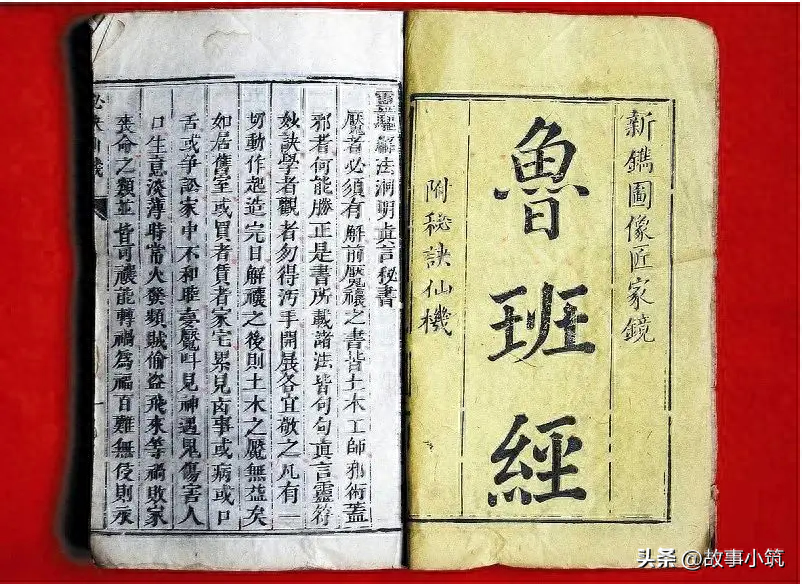 新鐫圖像匠家鏡
魯班經
附秘訣仙機
靈驅解法洞明眞言秘書
魘者必須有解前魘禳之書皆土木工師邪術蓋
邪者何能勝正是書所載諸法皆句句眞言靈符
妙訣學者觀者勿得污手開展各宜敬之凡有一
切動作起造完日解禳之後則土木之魘無益矣
如居舊室或買者賃者家宅累見凶事或病或口
舌或爭訟家中不和睡夢魘叫見神遇鬼傷害人
口生意淡薄時常火發類賊偷盜飛來等禍敗家
喪命之類並皆可禳能轉禍為福百難無侵則永
頭条 @故事小筑